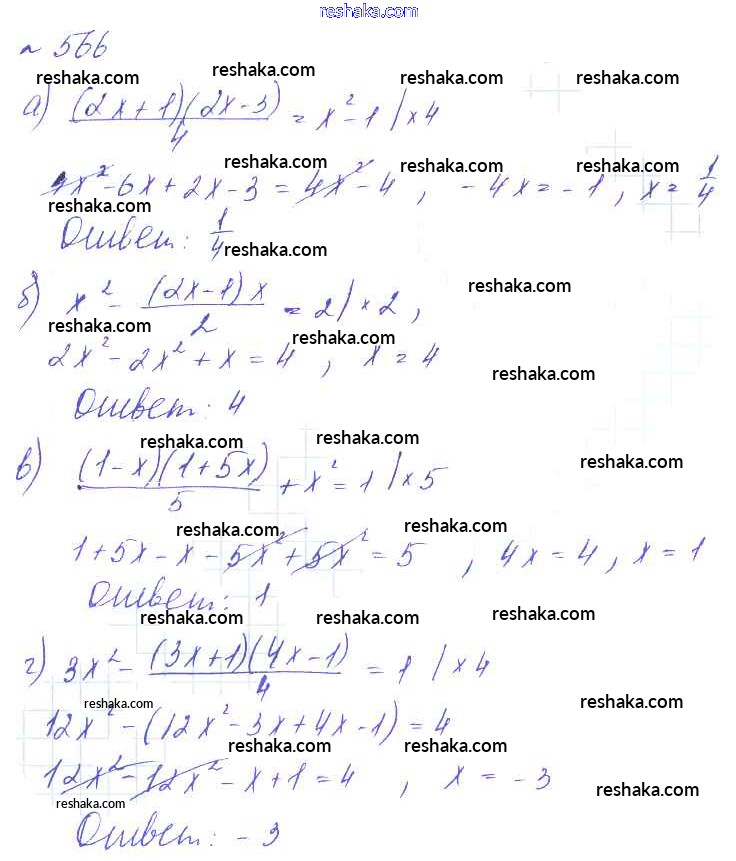 reshaka.com
№ 566
reshaka.com reshaka.com reshaka.com
а) (2x+1)(2x-3)/4 = x²-1 |×4
reshaka.com reshaka.com reshaka.com
4x²-6x+2x-3 = 4x²-4, -4x = -1, x = 1/4
reshaka.com reshaka.com reshaka.com
Ответ: 1/4
reshaka.com
reshaka.com
б) x² - (2x-1)x/2 = 2 |×2,
reshaka.com reshaka.com
2x²-2x²+x = 4, x = 4
reshaka.com
Ответ: 4
reshaka.com reshaka.com
в) (1-x)(1+5x)/5 + x² = 1 |×5
reshaka.com
reshaka.com reshaka.com
1+5x-x-5x²+5x² = 5, 4x = 4, x = 1
reshaka.com
Ответ: 1
reshaka.com reshaka.com reshaka.com
г) 3x² - (3x+1)(4x-1)/4 = 1 |×4
reshaka.com reshaka.com reshaka.com
12x²-(12x²-3x+4x-1) = 4
reshaka.com reshaka.com reshaka.com
12x²-12x²-x+1 = 4, x = -3
reshaka.com reshaka.com
Ответ: -3